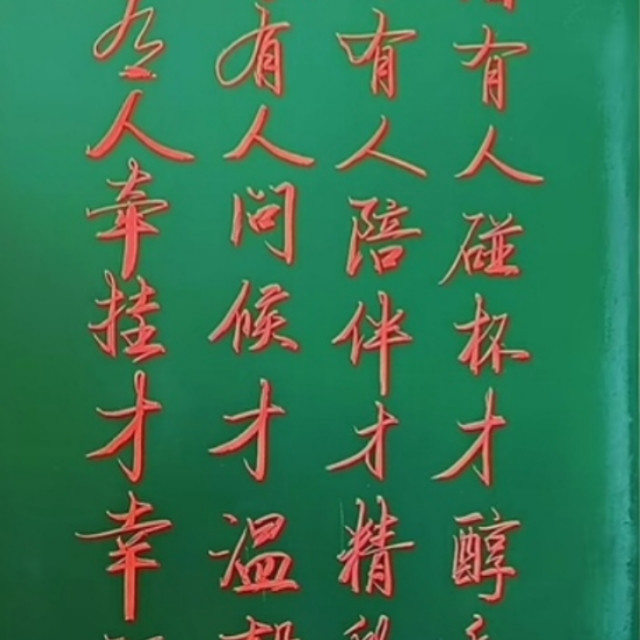 有人碰杯才醇
有人陪伴才精
有人问候才温
有人牵挂才幸